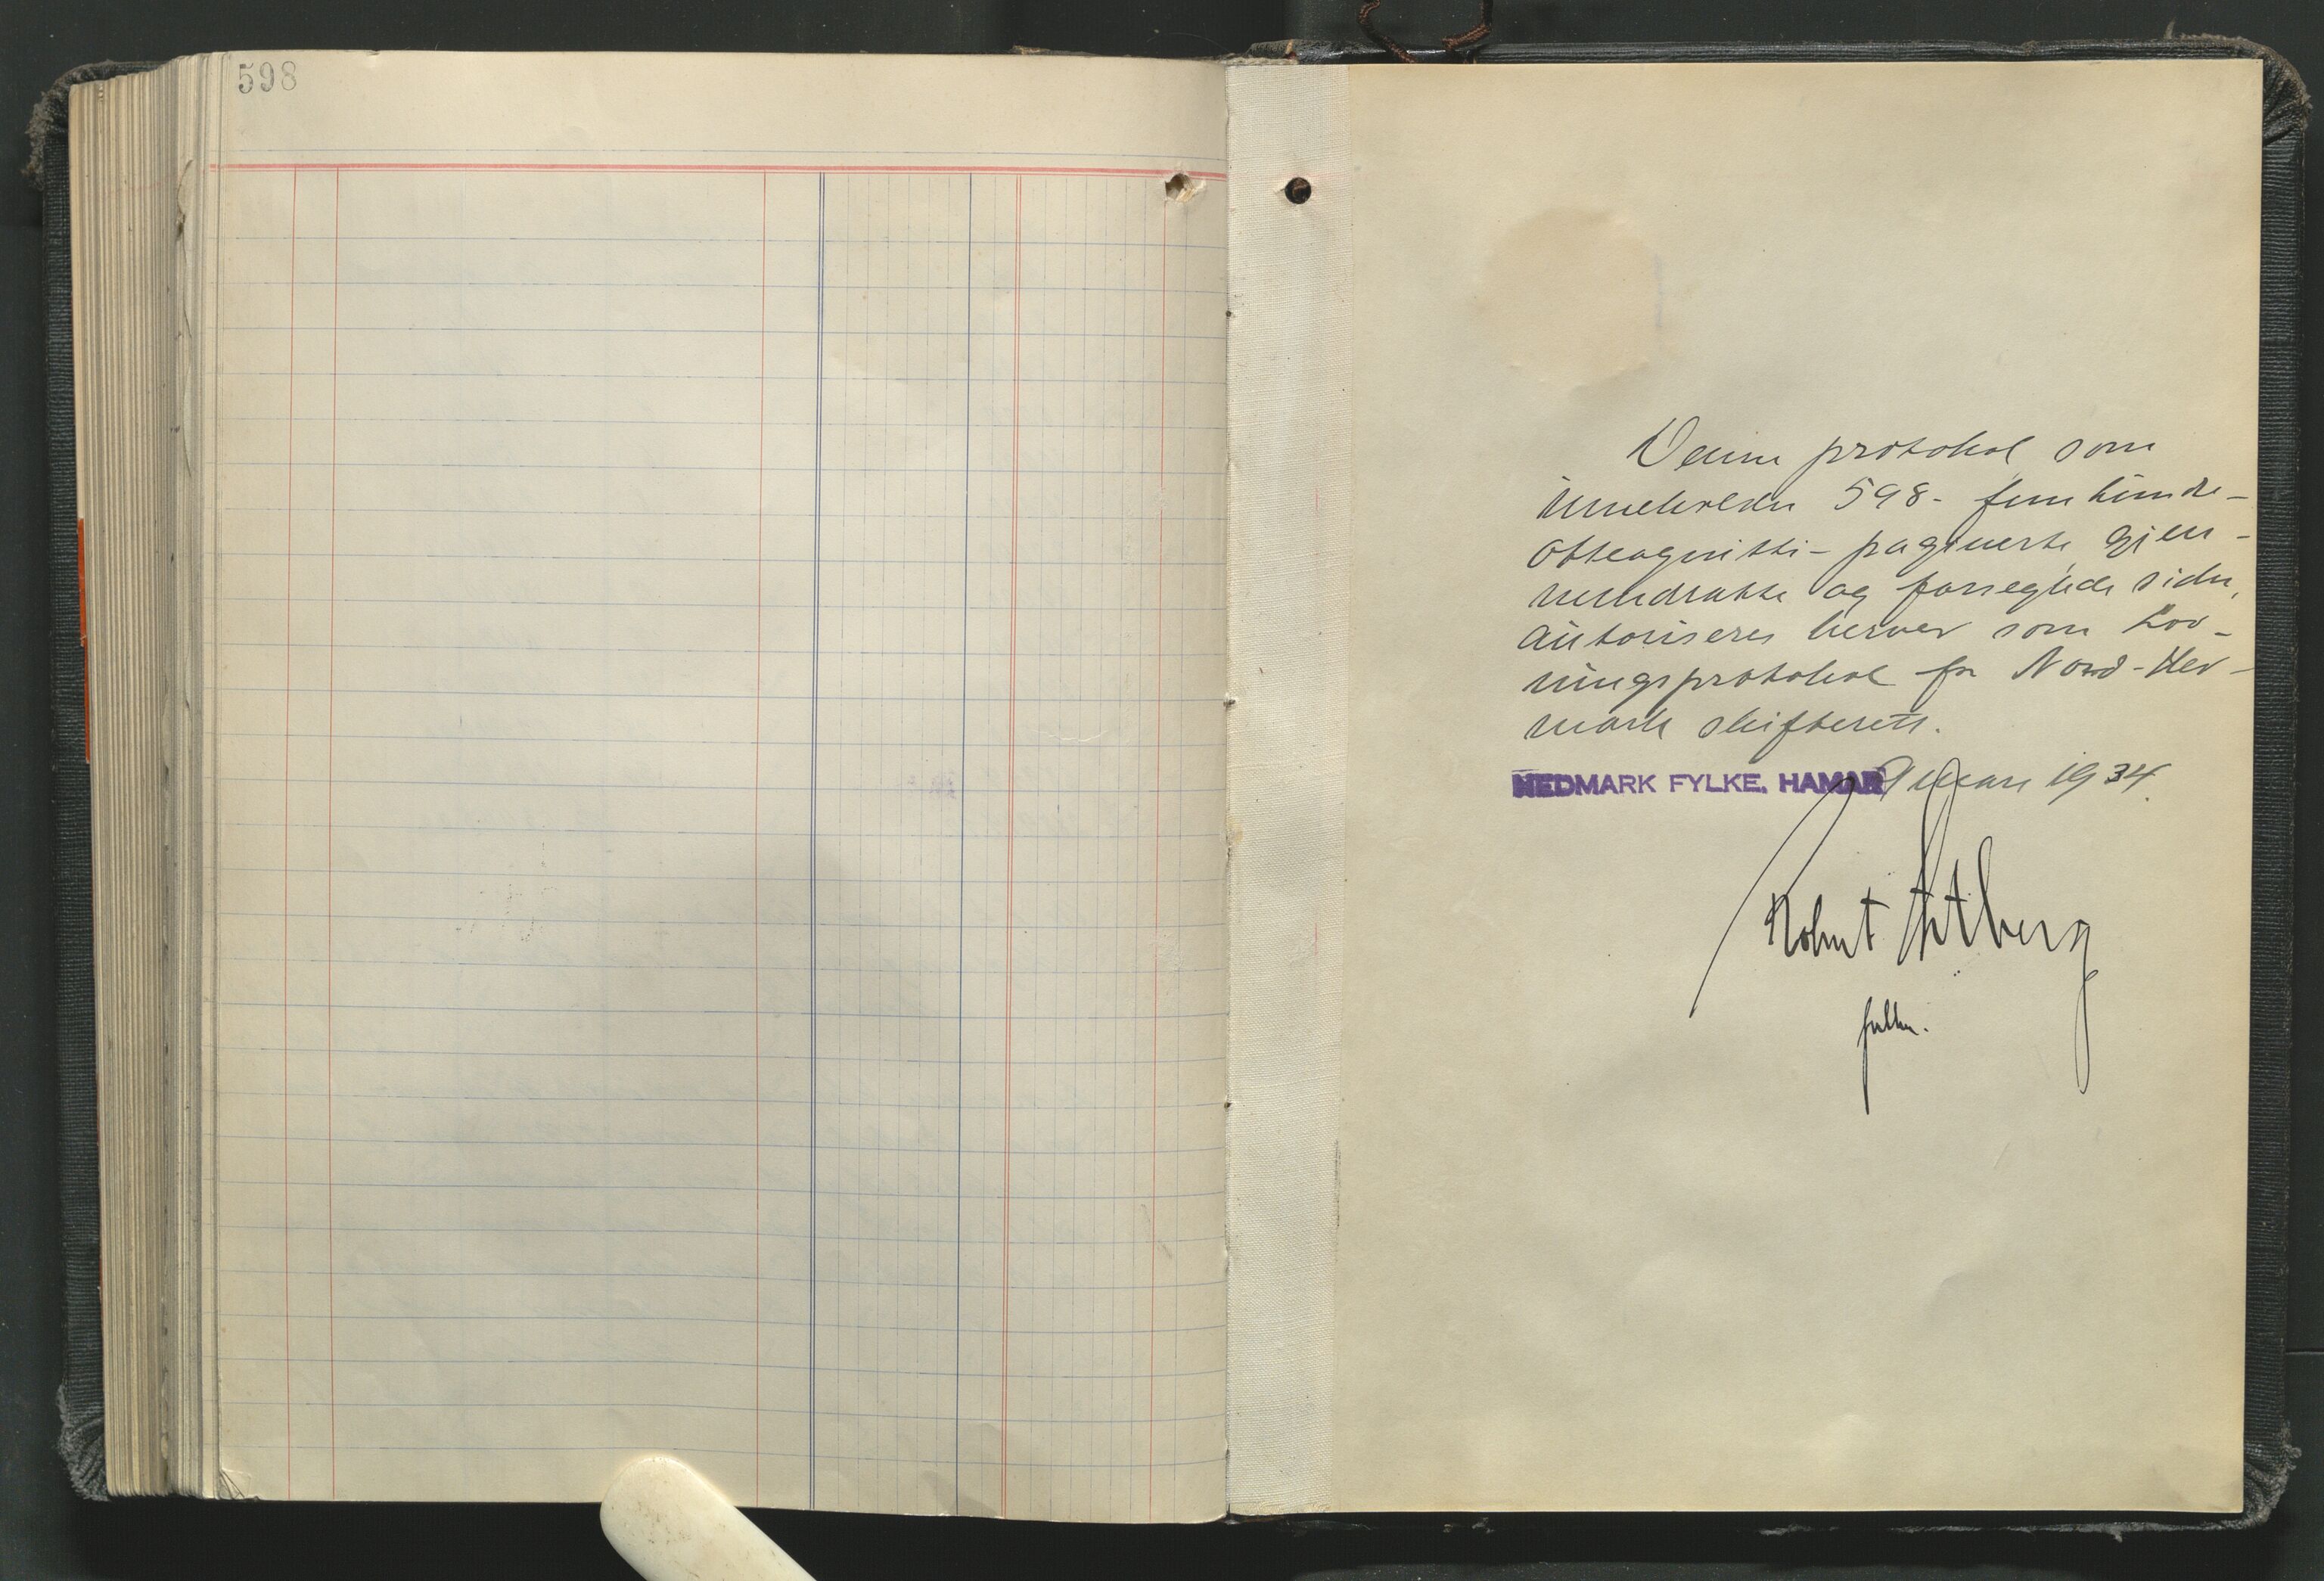 598
Denne protokol som
inneholder 598- femhundre-
otteognitti- paginerte, gjen-
nemdratte og forseglede sider,
autoriseres herved som
ningsprotokol for Nord-Hed-
mark skifterett.
HEDMARK FYLKE, HAMAR mars 1934.
Robert
fullm.